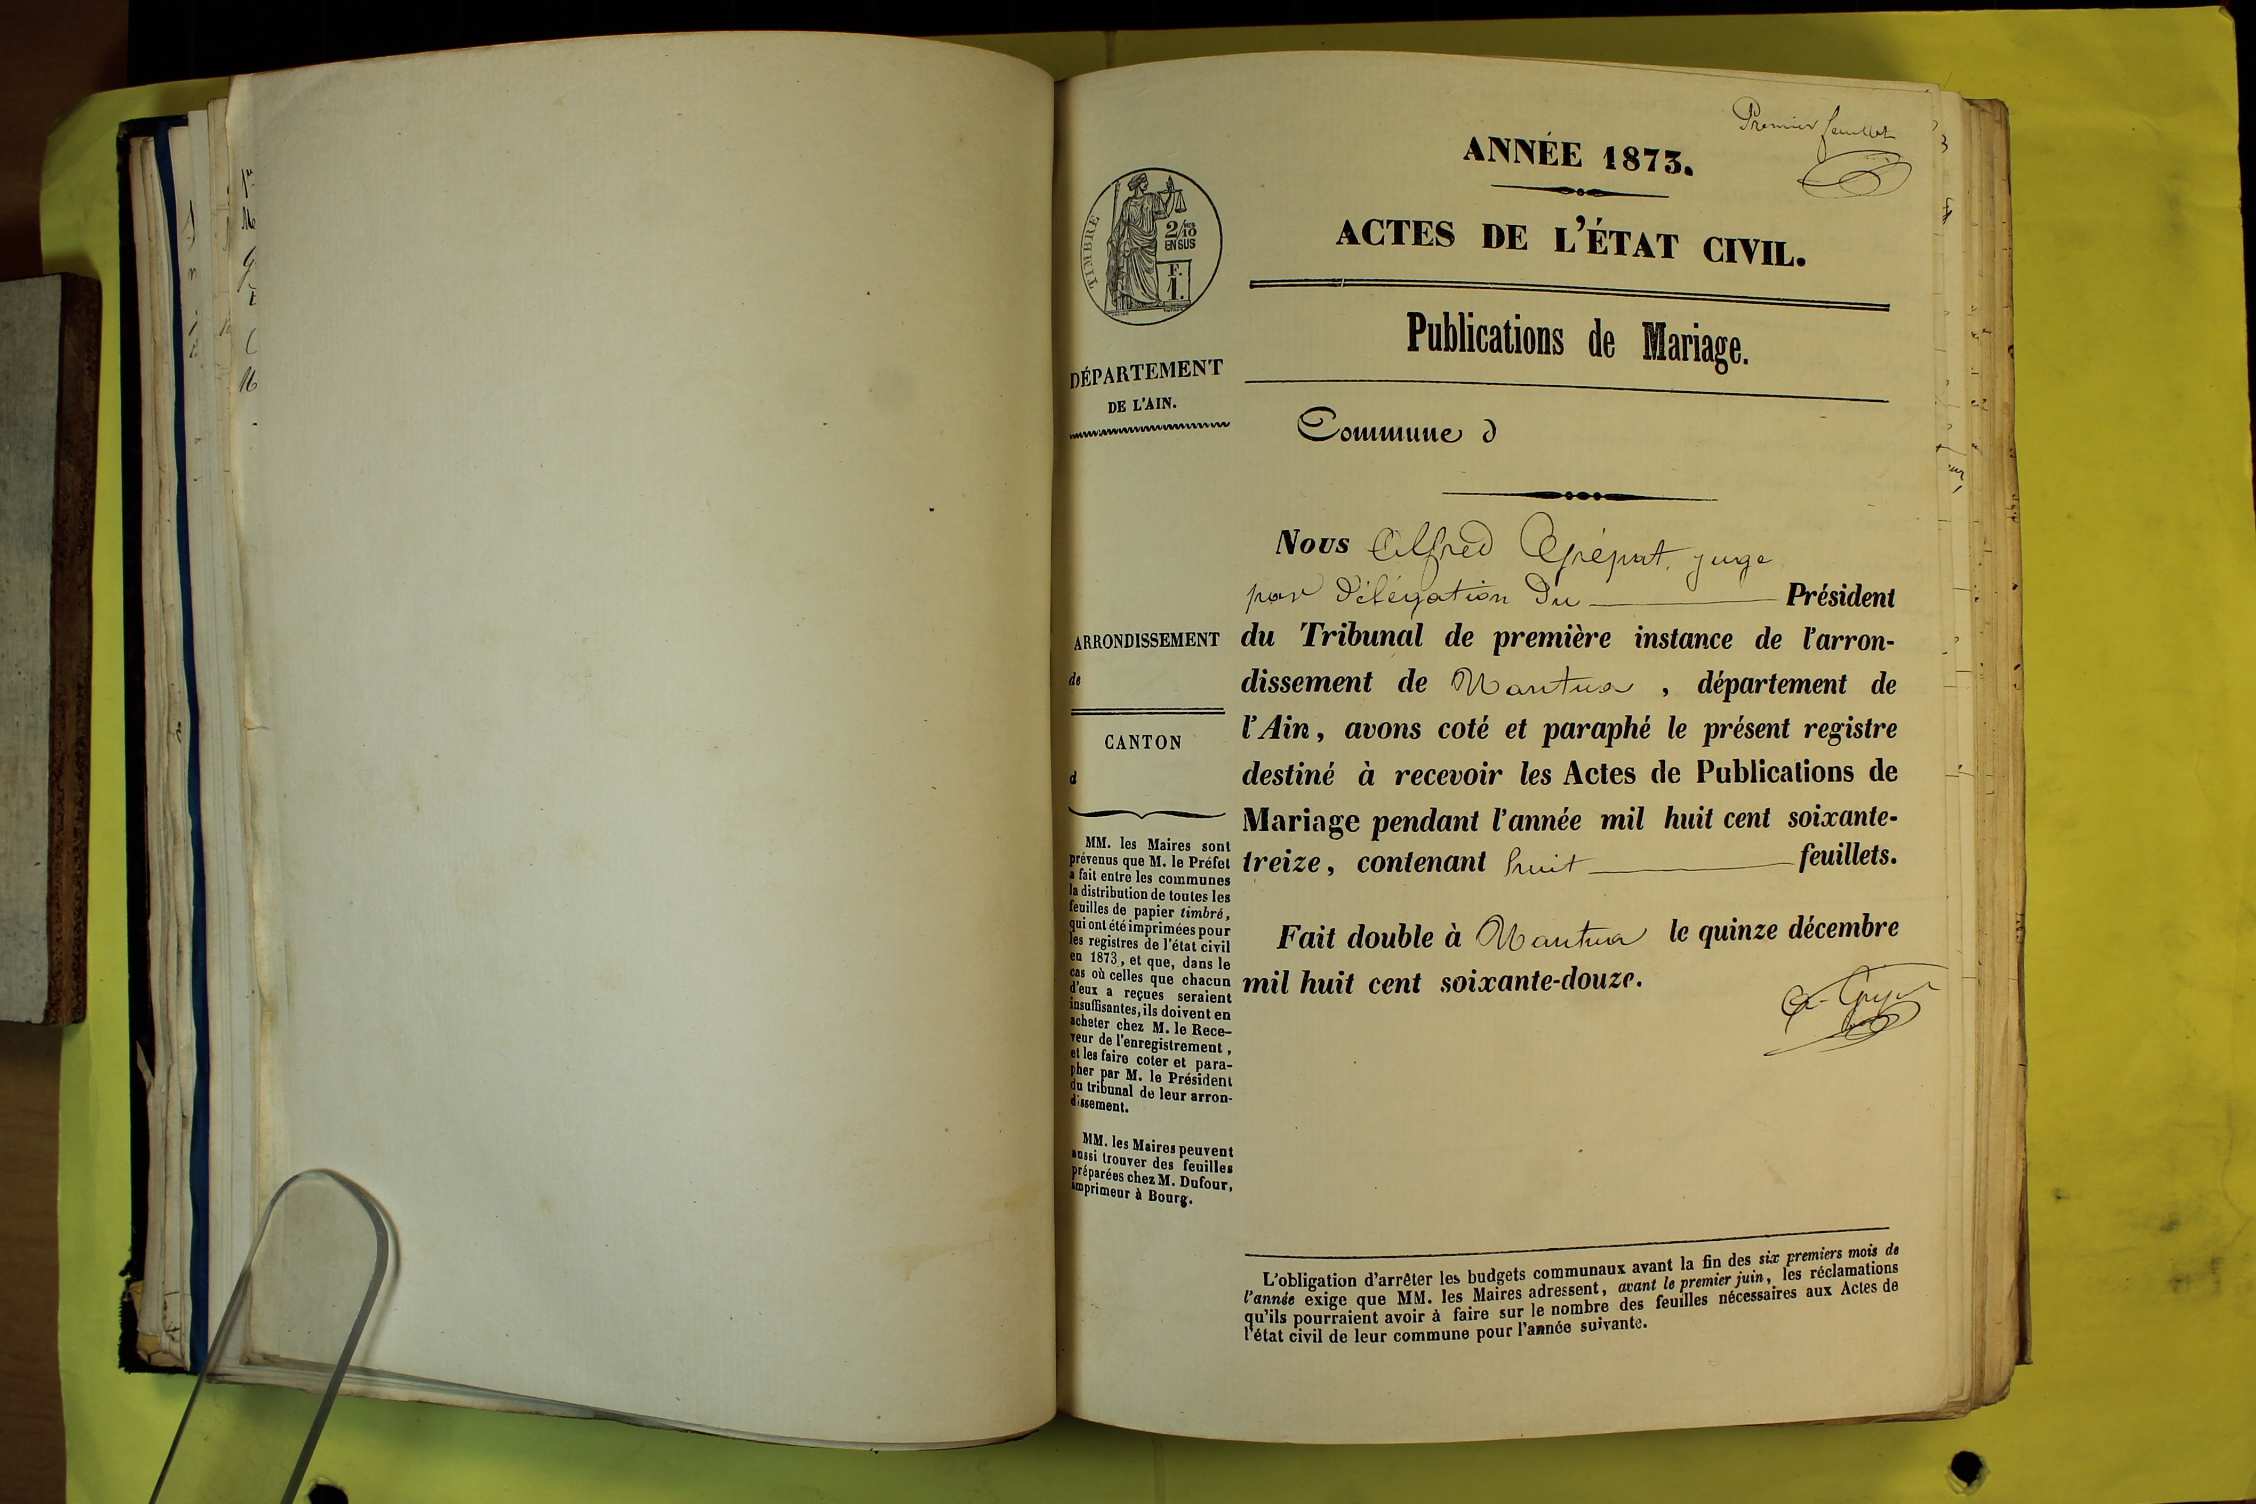 Premier feuillet
ANNÉE 1873.
ACTES DE L'ÉTAT CIVIL.
TIMBRE
2/10
EN SUS
F.
1.
Publications de Mariage.
DÉPARTEMENT
DE L'AIN.
Commune d
Nous Alfred juge
par délégation du Président
du Tribunal de première instance de l'arron-
dissement de Nantua, département de
l'Ain, avons coté et paraphé le présent registre
destiné à recevoir les Actes de Publications de
Mariage pendant l'année mil huit cent soixante-
treize, contenant huit feuillets.
Fait double à Nantua le quinze décembre
mil huit cent soixante-douze.
ARRONDISSEMENT
de
CANTON
d
MM. les Maires sont
prévenus que M. le Préfet
a fait entre les communes
la distribution de toutes les
feuilles de papier timbré,
qui ont été imprimées pour
les registres de l'état civil
en 1873, et que, dans le
cas où celles que chacun
d'eux a reçues seraient
insuffisantes, ils doivent en
acheter chez M. le Rece-
veur de l'enregistrement,
et les faire coter et para-
pher par M. le Président
du tribunal de leur arron-
dissement.
MM. les Maires peuvent
aussi trouver des feuilles
préparées chez M. Dufour,
imprimeur à Bourg.
L'obligation d'arrêter les budgets communaux avant la fin des six premiers mois de
l'année exige que MM. les Maires adressent, avant le premier juin, les réclamations
qu'ils pourraient avoir à faire sur le nombre des feuilles nécessaires aux Actes de
l'état civil de leur commune pour l'année suivante.